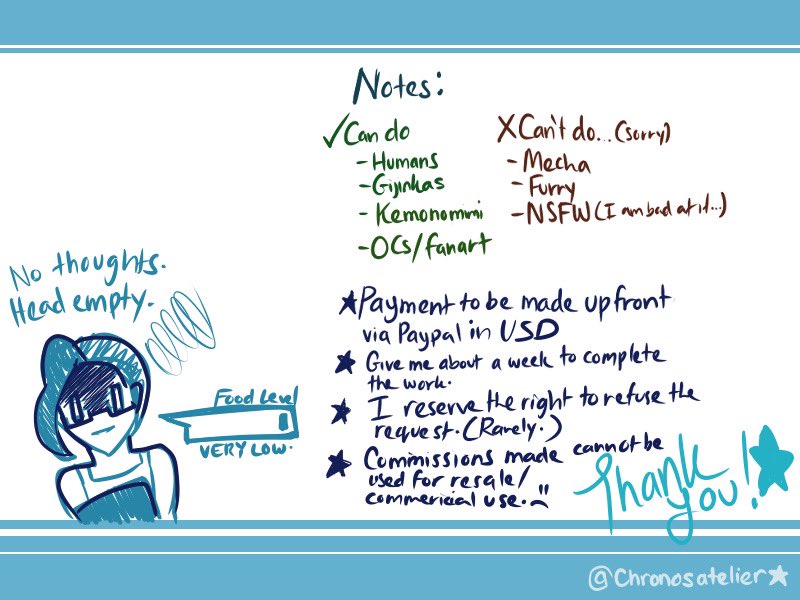 Notes:
✓Can do
- Humans
- Gijinkas
- Kemonomimi
- OCs/fanart
XCan't do... (sorry)
- Mecha
- Furry
- NSFW (I am bad at it...)
No thoughts.
Head empty.
Food Level
VERY LOW.
★Payment to be made upfront
via Paypal in USD
★ Give me about a week to complete
the work.
★ I reserve the right to refuse the
request. (Rarely.)
★ Commissions made cannot be
used for resale/
commericial use. :(
Thank
you! ★
@Chronosatelier★